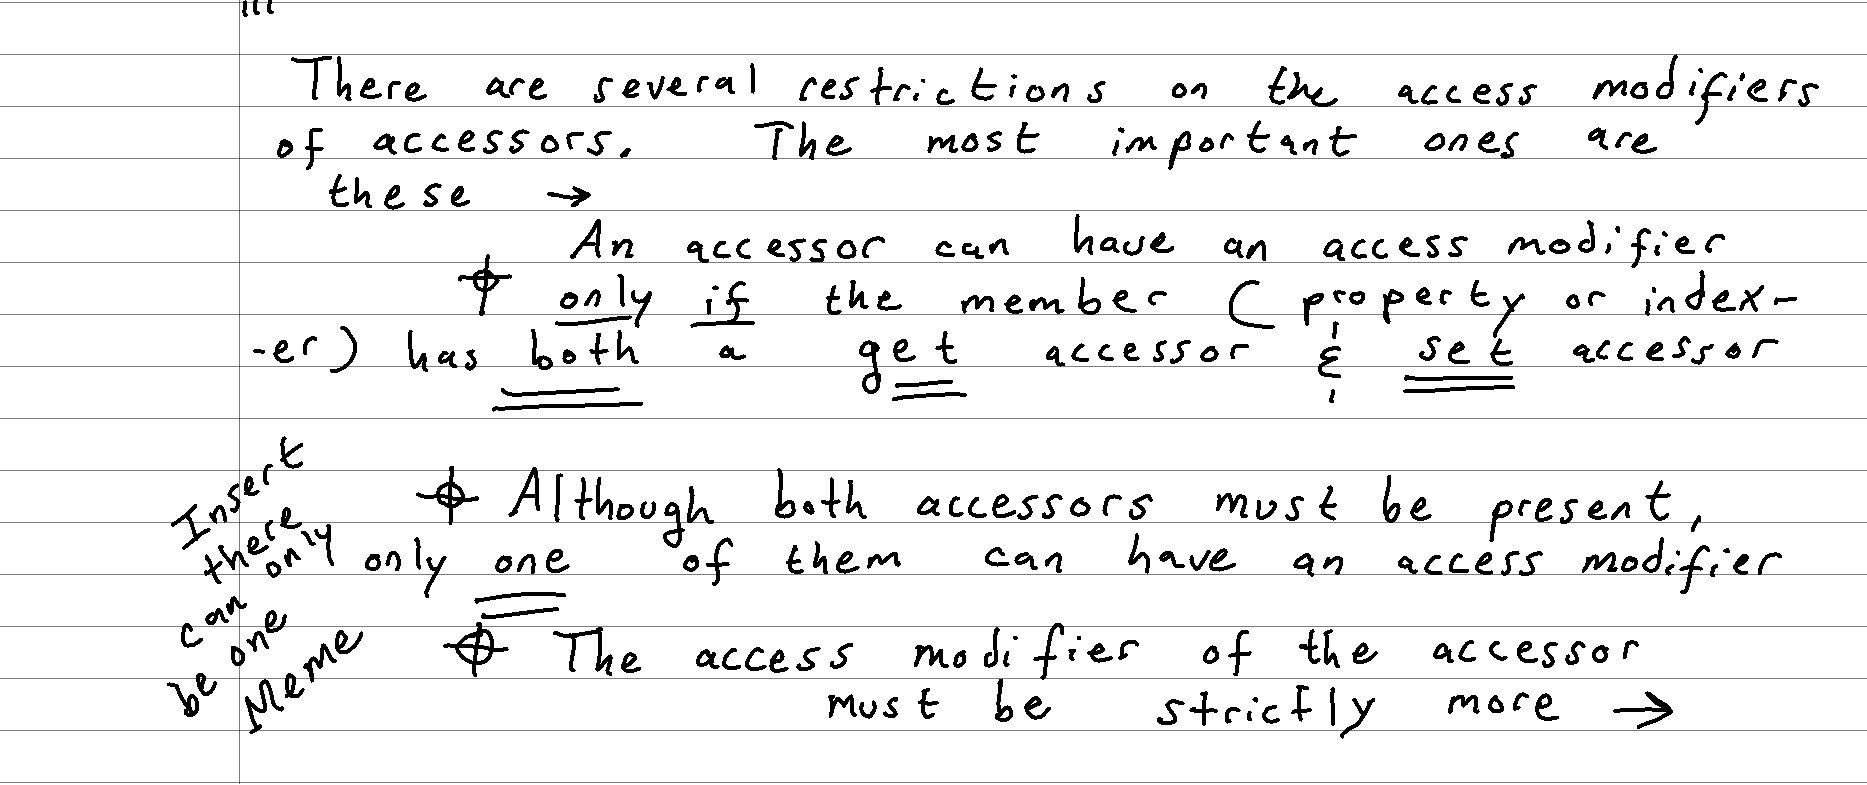 There are several restrictions on the access modifiers
of accessors. The most important ones are
these →
An accessor can have an access modifier
only if the member ( property or index-
-er) has both a get accessor & set accessor
Although both accessors must be present,
only one of them can have an access modifier
The access modifier of the accessor
must be strictly more →
Insert
there
can only
be one
Meme